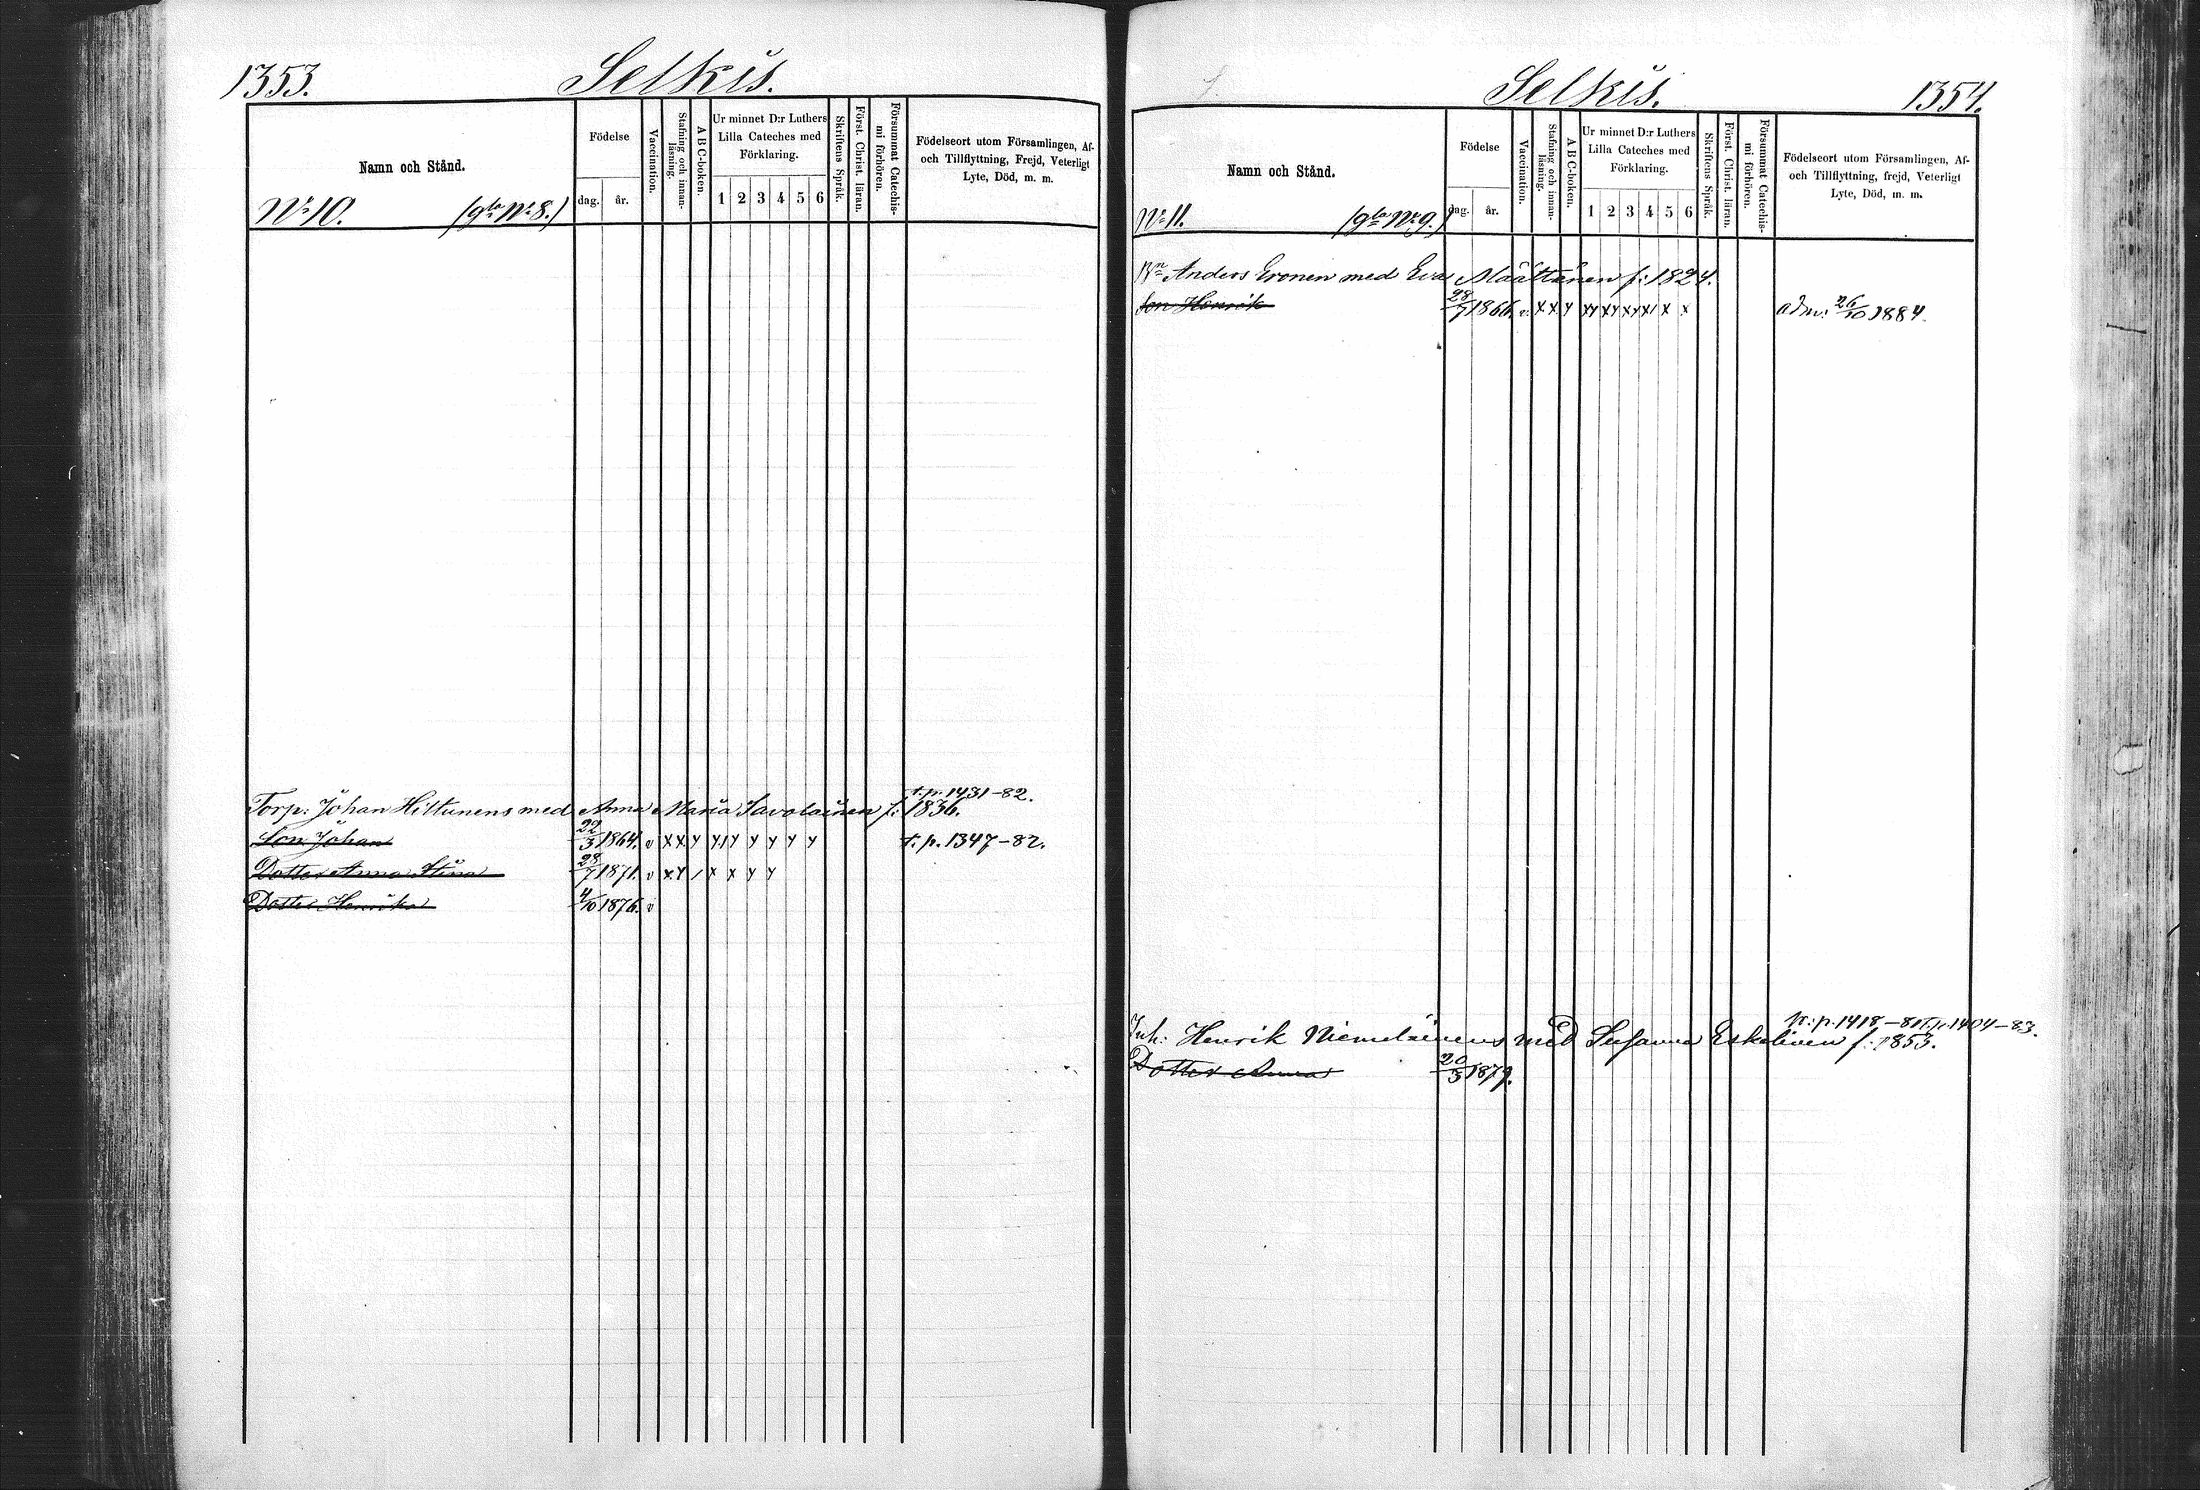 1353.
Selkis.
Namn och Stånd.
Födelse
dag.
år.
Vaccination.
Stafning och innan-
läsning.
A B C-boken.
Ur minnet D:r Luthers
Lilla Cateches med
Förklaring.
1 2 3 4 5 6
Skriftens Språk.
Först. Christ. läran.
Försummat Catechis-
mi förhören.
Födelseort utom Församlingen, Af-
och Tillflyttning, Frejd, Veterligt
Lyte, Död, m. m.
No 10. (gla No 8.)
t. p. 1431-82.
Torp: Johan Hiltunens med Anna Maria Savolainen f: 1836.
Son Johan 22/3 1864. v x x y y y y y y y y t. p. 1347-82.
Dotter Anna Stina 28/7 1871. v x y / x x y y
Dotter Henrika 4/10 1876. v
Selkis.
1354.
Namn och Stånd.
Födelse
dag.
år.
Vaccination.
Stafning och innan-
läsning.
A B C-boken.
Ur minnet D:r Luthers
Lilla Cateches med
Förklaring.
1 2 3 4 5 6
Skriftens Språk.
Först. Christ. läran.
Försummat Catechis-
mi förhören.
Födelseort utom Församlingen, Af-
och Tillflyttning, frejd, Veterligt
Lyte, Död, m. m.
No 11. (gla No 9.)
Bn Anders Eronen med Eva Määttänen f: 1824.
Son Henrik 28/7 1866. v. x x y xy xy xy x/ x x adm: 26/10 1884.
fr: p. 1418-81 t. p. 1404-83.
Inh: Henrik Niemeläinens med Susanna Eskelinen f: 1853.
Dotter Anna 20/3 1879.